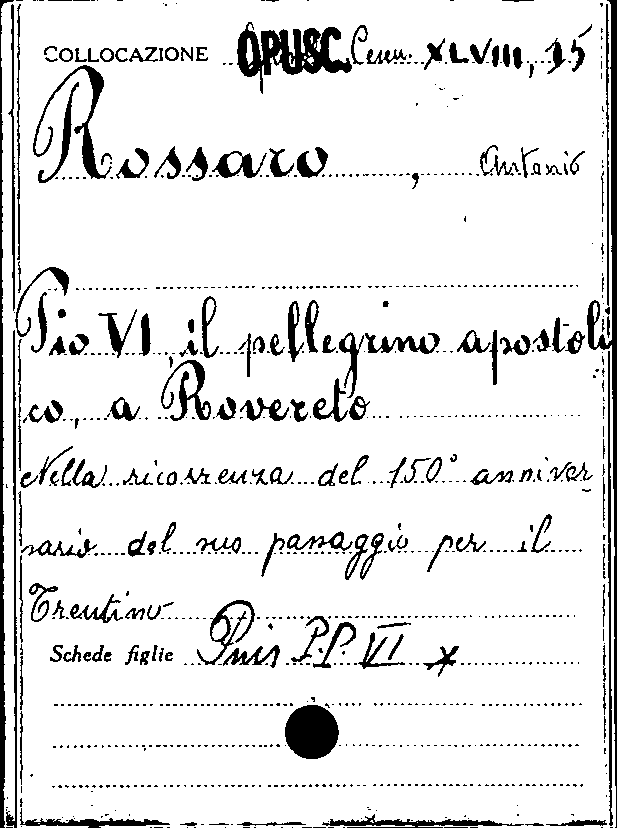 COLLOCAZIONE OPUSC. Cenn. XLVIII, 15
Rossaro, Antonio
Pio VI, il pellegrino apostoli
co, a Rovereto
Nella ricorrenza del 150° anniver
sario del suo passaggio per il
Trentino
Schede figlie Pius P.P. VI x